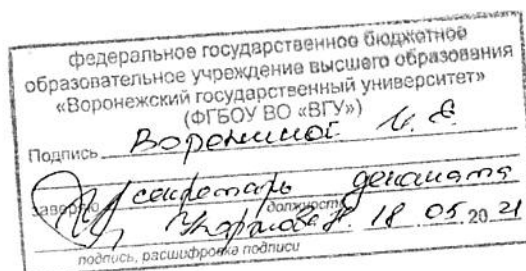 федеральное государственное бюджетное
образовательное учреждение высшего образования
«Воронежский государственный университет»
(ФГБОУ ВО «ВГУ»)
Подпись Ворониной И. Е.
заверяю секретарь деканата
должность
18 05 20 21
подпись, расшифровка подписи